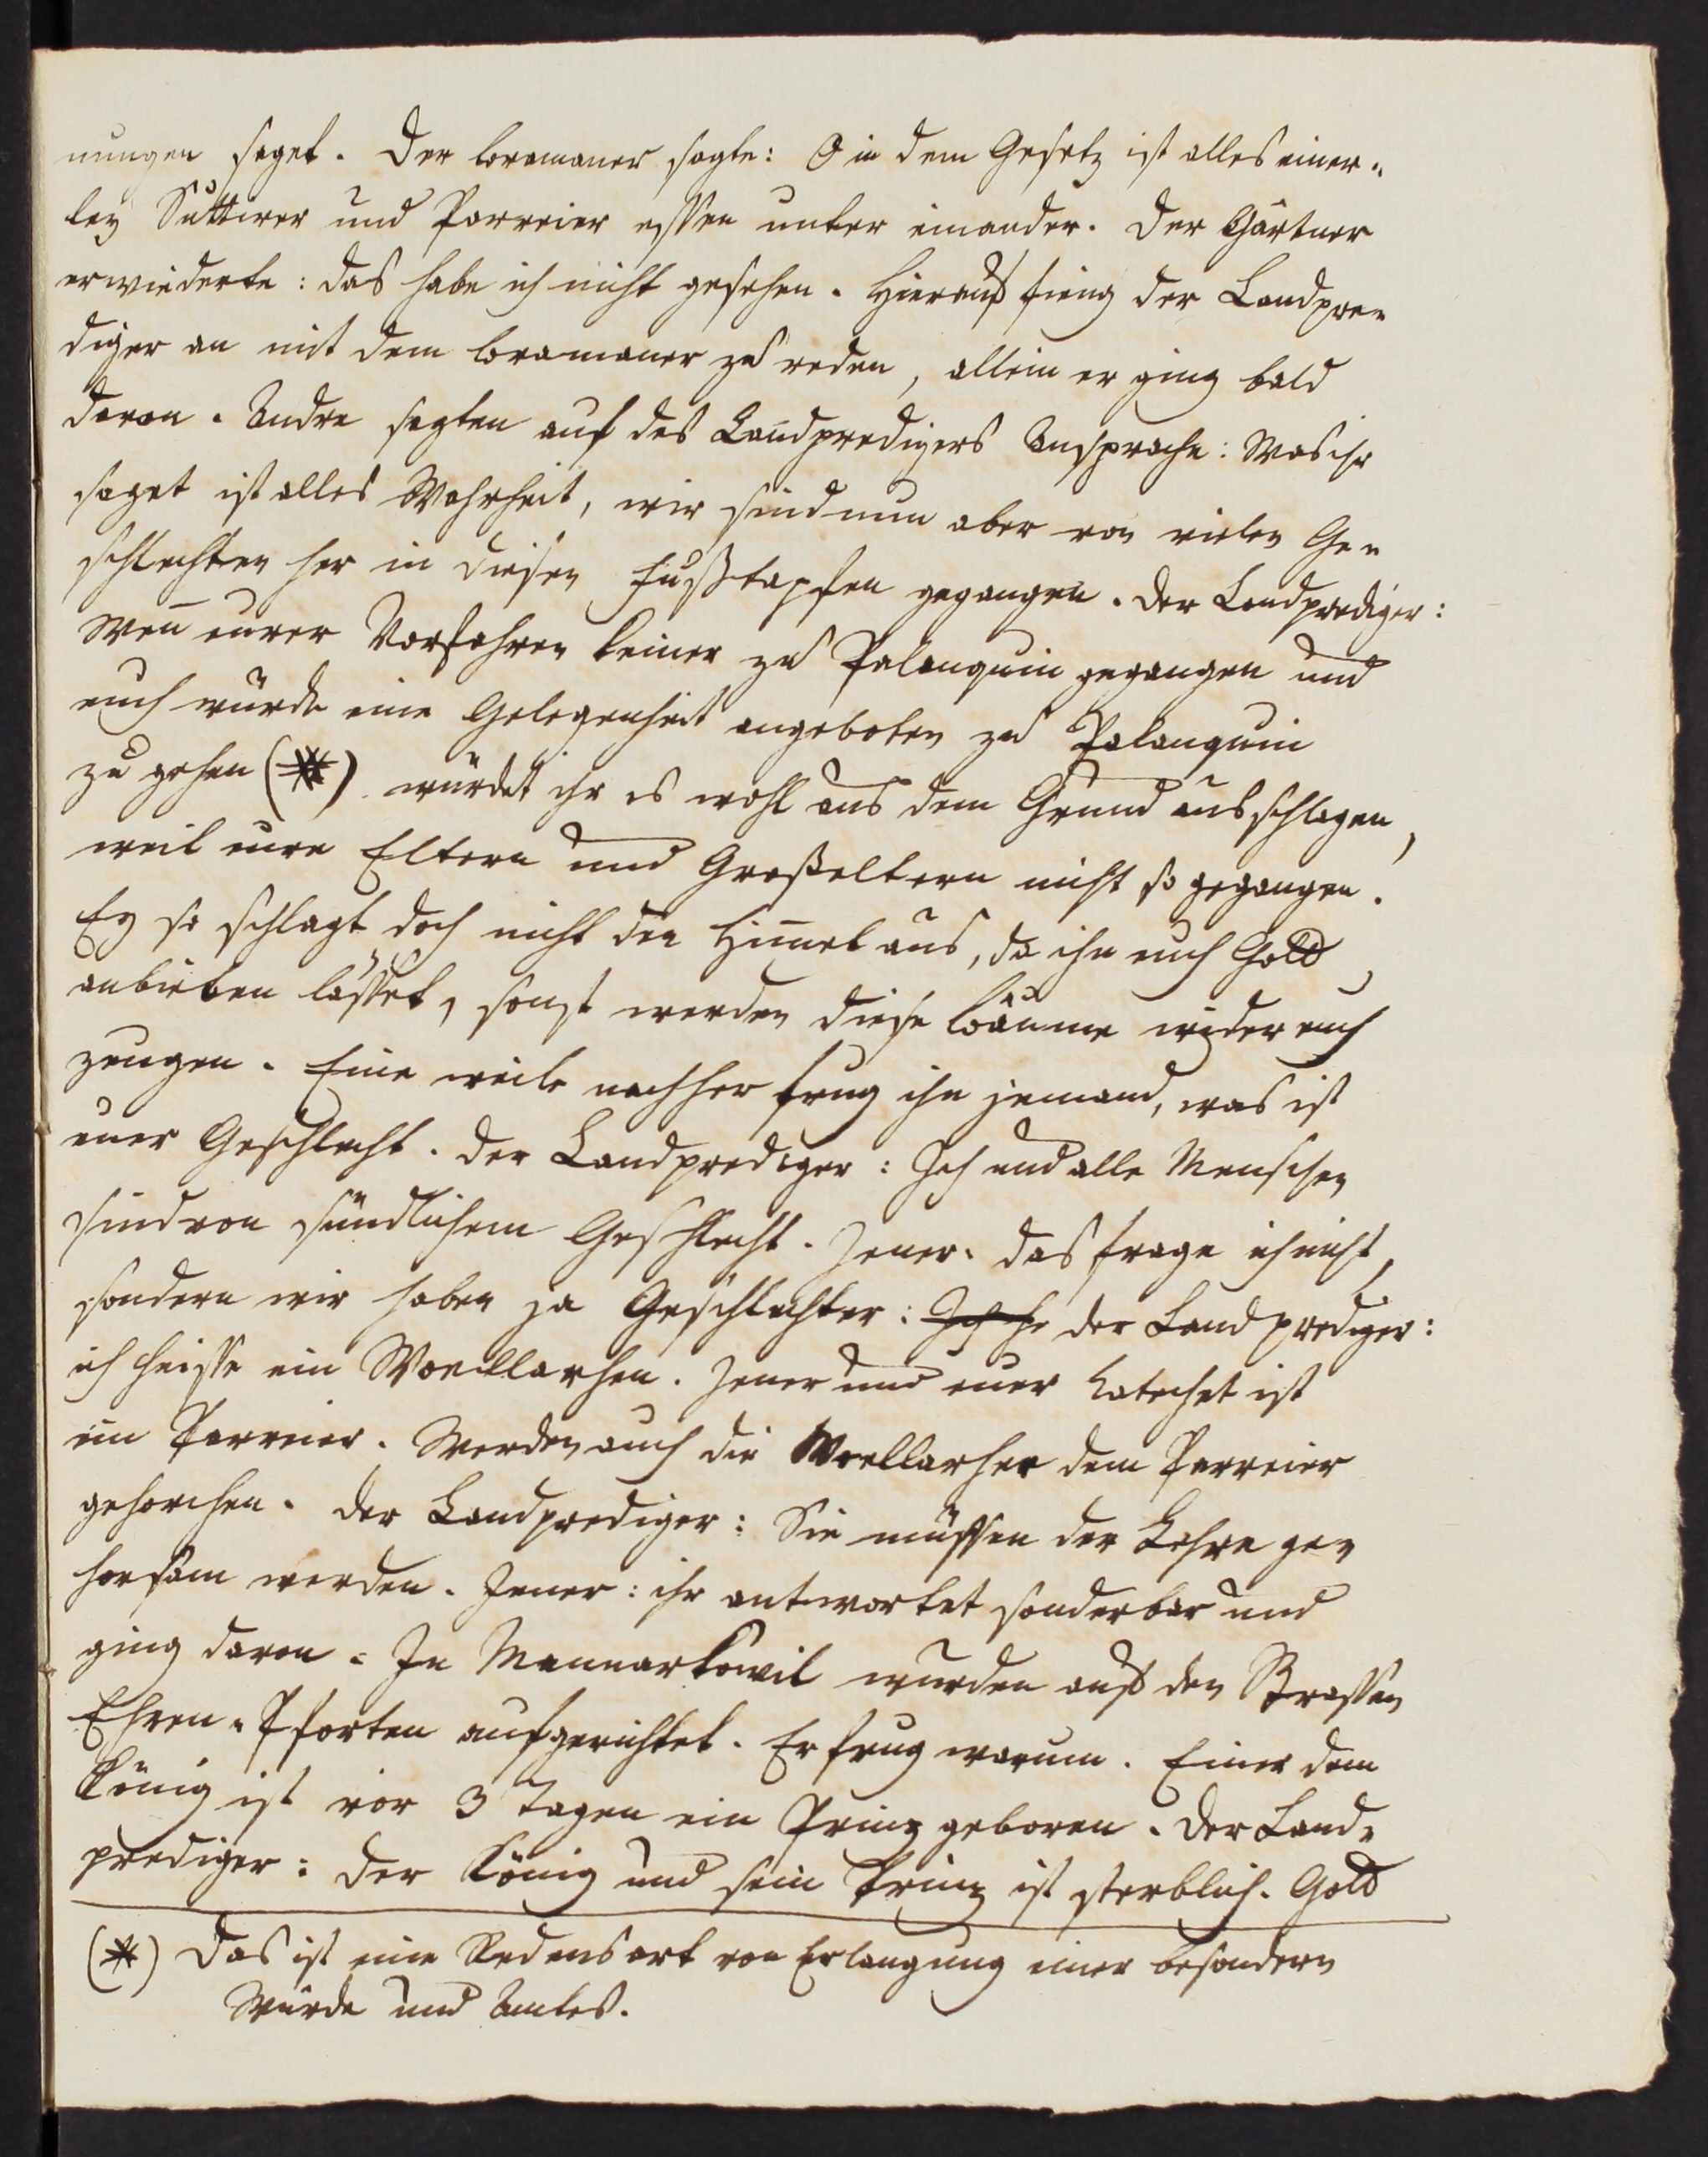 nungen saget. Der bramaner sagte: O in dem Gesetz ist alles einer-
ley Suttirer und Parreier essen unter einander. Der Gärtner
erwiederte: das habe ich nicht gesehen. Hierauf fieng der Landpre-
diger an mit dem bramaner zu reden, allein er ging bald
davon. Andre sagten auf des Landpredigers Ansprache: Was ihr
saget ist alles Wahrheit, wir sind nun aber von vielen Ge-
schlechten her in diesen Fußstapfen gegangen. Der Landprediger:
Weñ eurer Vorfahren keiner zu Palanquin gegangen und
euch würde eine Gelegenheit angeboten zu Palanquin
zu gehen (*) würdet ihr es wohl aus dem Grund ausschlagen,
weil eure Eltern und Großeltern nicht so gegangen.
Ey so schlagt doch nicht den Him̃el aus, da ihn euch Gott
anbieten lässet, sonst werden diese bäume wider euch
zeugen. Eine weile nachher frug ihn jemand, was ist
euer Geschlecht. Der Landprediger: Ich und alle Menschen
sind von sündlichem Geschlecht. Jener. das frage ich nicht,
sondern wir haben ja Geschlechter: Ich he der Landprediger:
ich heisse ein Woellarhen. Jener und euer Catechet ist
ein Parreier. Werden auch die Woellarher dem Parreier
gehorchen. der Landprediger: Sie müssen der Lehre ge-
horsam werden. Jener: ihr antwortet sonderbar und
ging davon. In Mannarkowil wurden auf den Strassen
Ehren-Pforten aufgerichtet. Er frug warum. Einer dem
König ist vor 3 Tagen ein Prinz geboren. Der Land-
prediger: der König und sein Prinz ist sterblich. Gott
(*) Das ist eine Redensart von Erlangung einer besondern
Würde und Amtes.